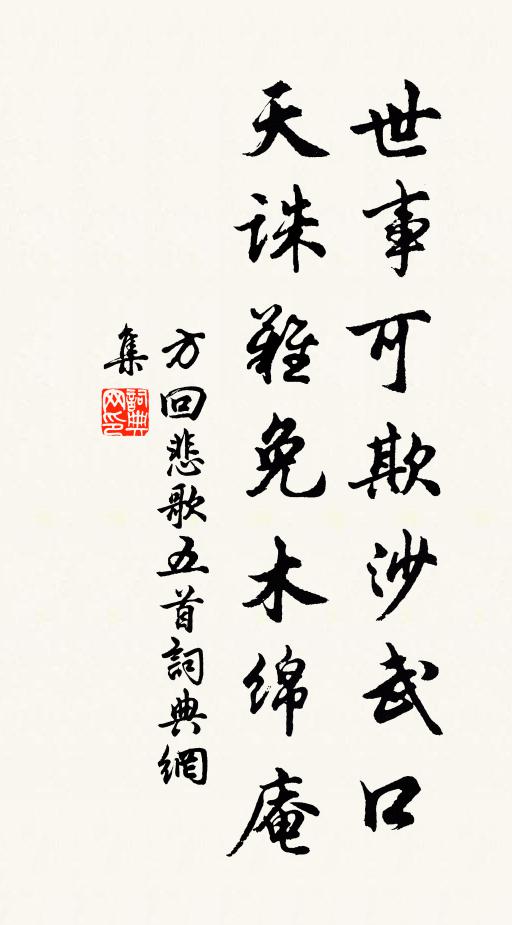 世事可欺沙武口
天誅難免木綿庵
方回悲歌五首詞典網
集
詞典网印